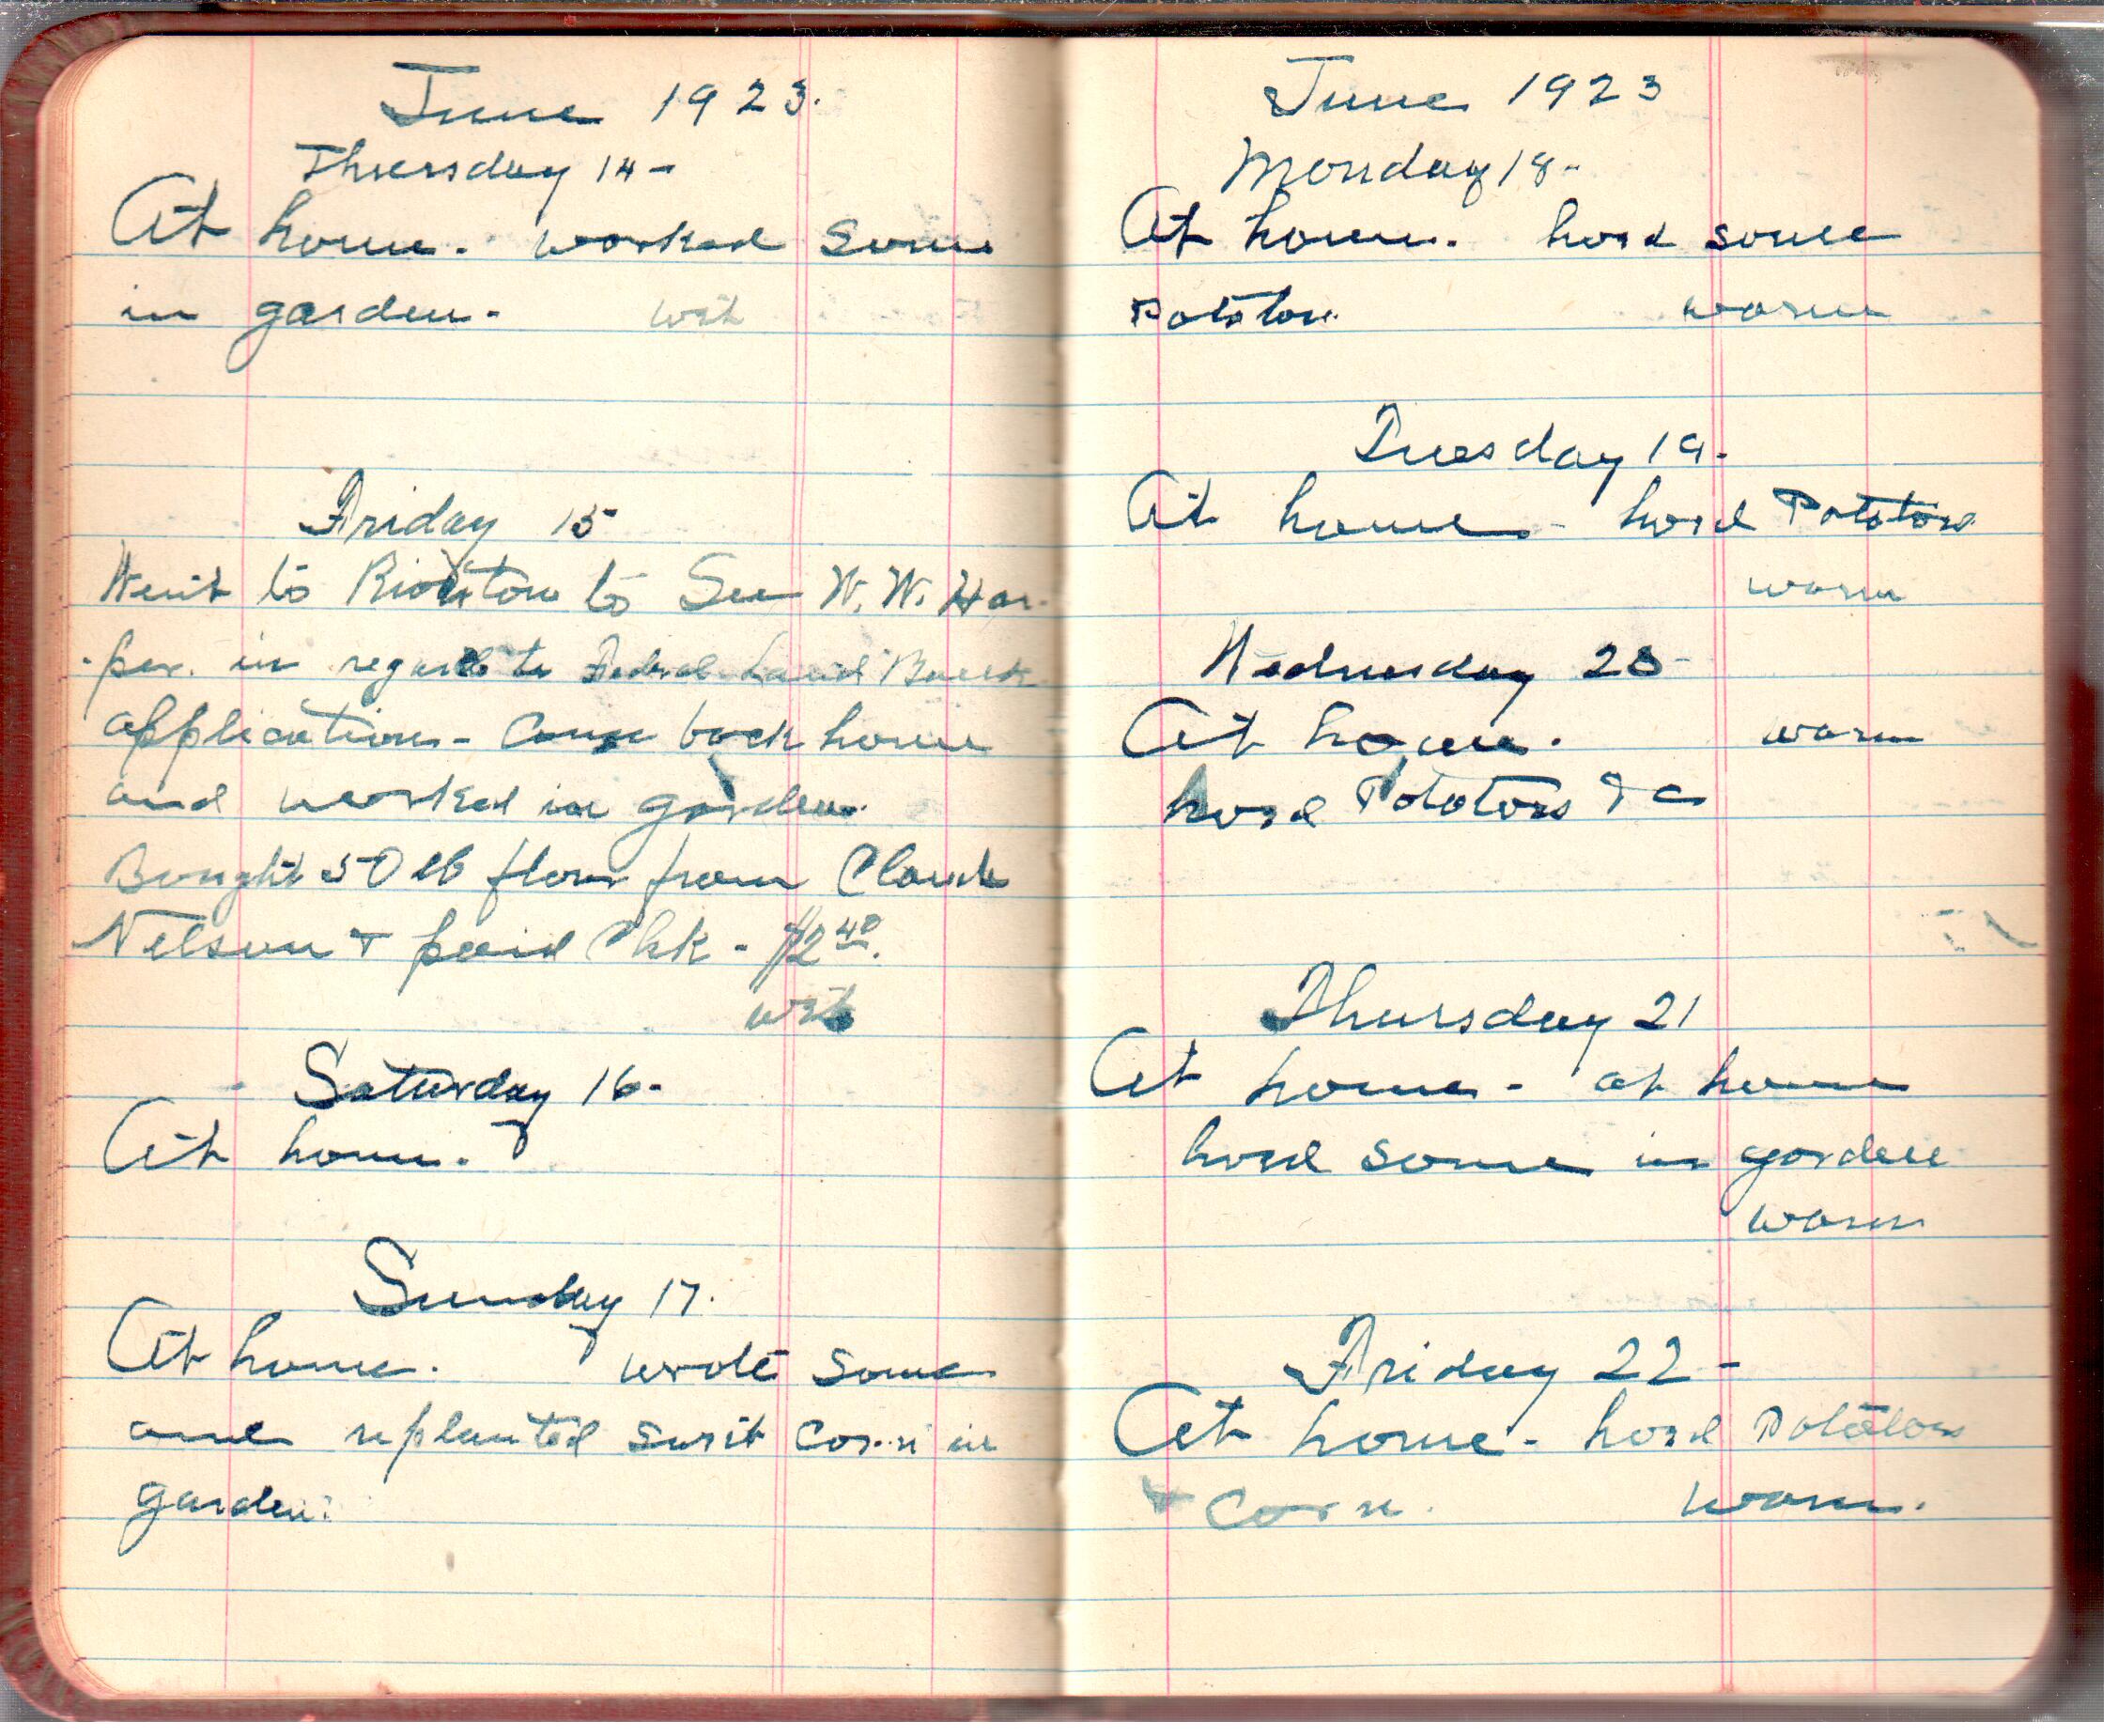 June 1923.
Thursday 14-
At home. worked some
in garden. wet
Friday 15
Went to to See W. W. Har-
-per. in regard to Fedral Land Bank
application - Came back home
and worked in garden.
Bought 50 lb flour from Claude
Nelson & paid Chk - $2.40.
wet
Saturday 16-
At home.
Sunday 17.
At home. wrote some
and replanted sweet corn in
garden.
June 1923
Monday 18-
At home. hoed some
Potatoes. warm
Tuesday 19-
At home - hoed Potatoes
warm
Wednesday 20-
At home. warm
hoed Potatoes & c
Thursday 21
At home - at home
hoed some in garden
warm
Friday 22-
At home - hoed Potatoes
& Corn. warm.